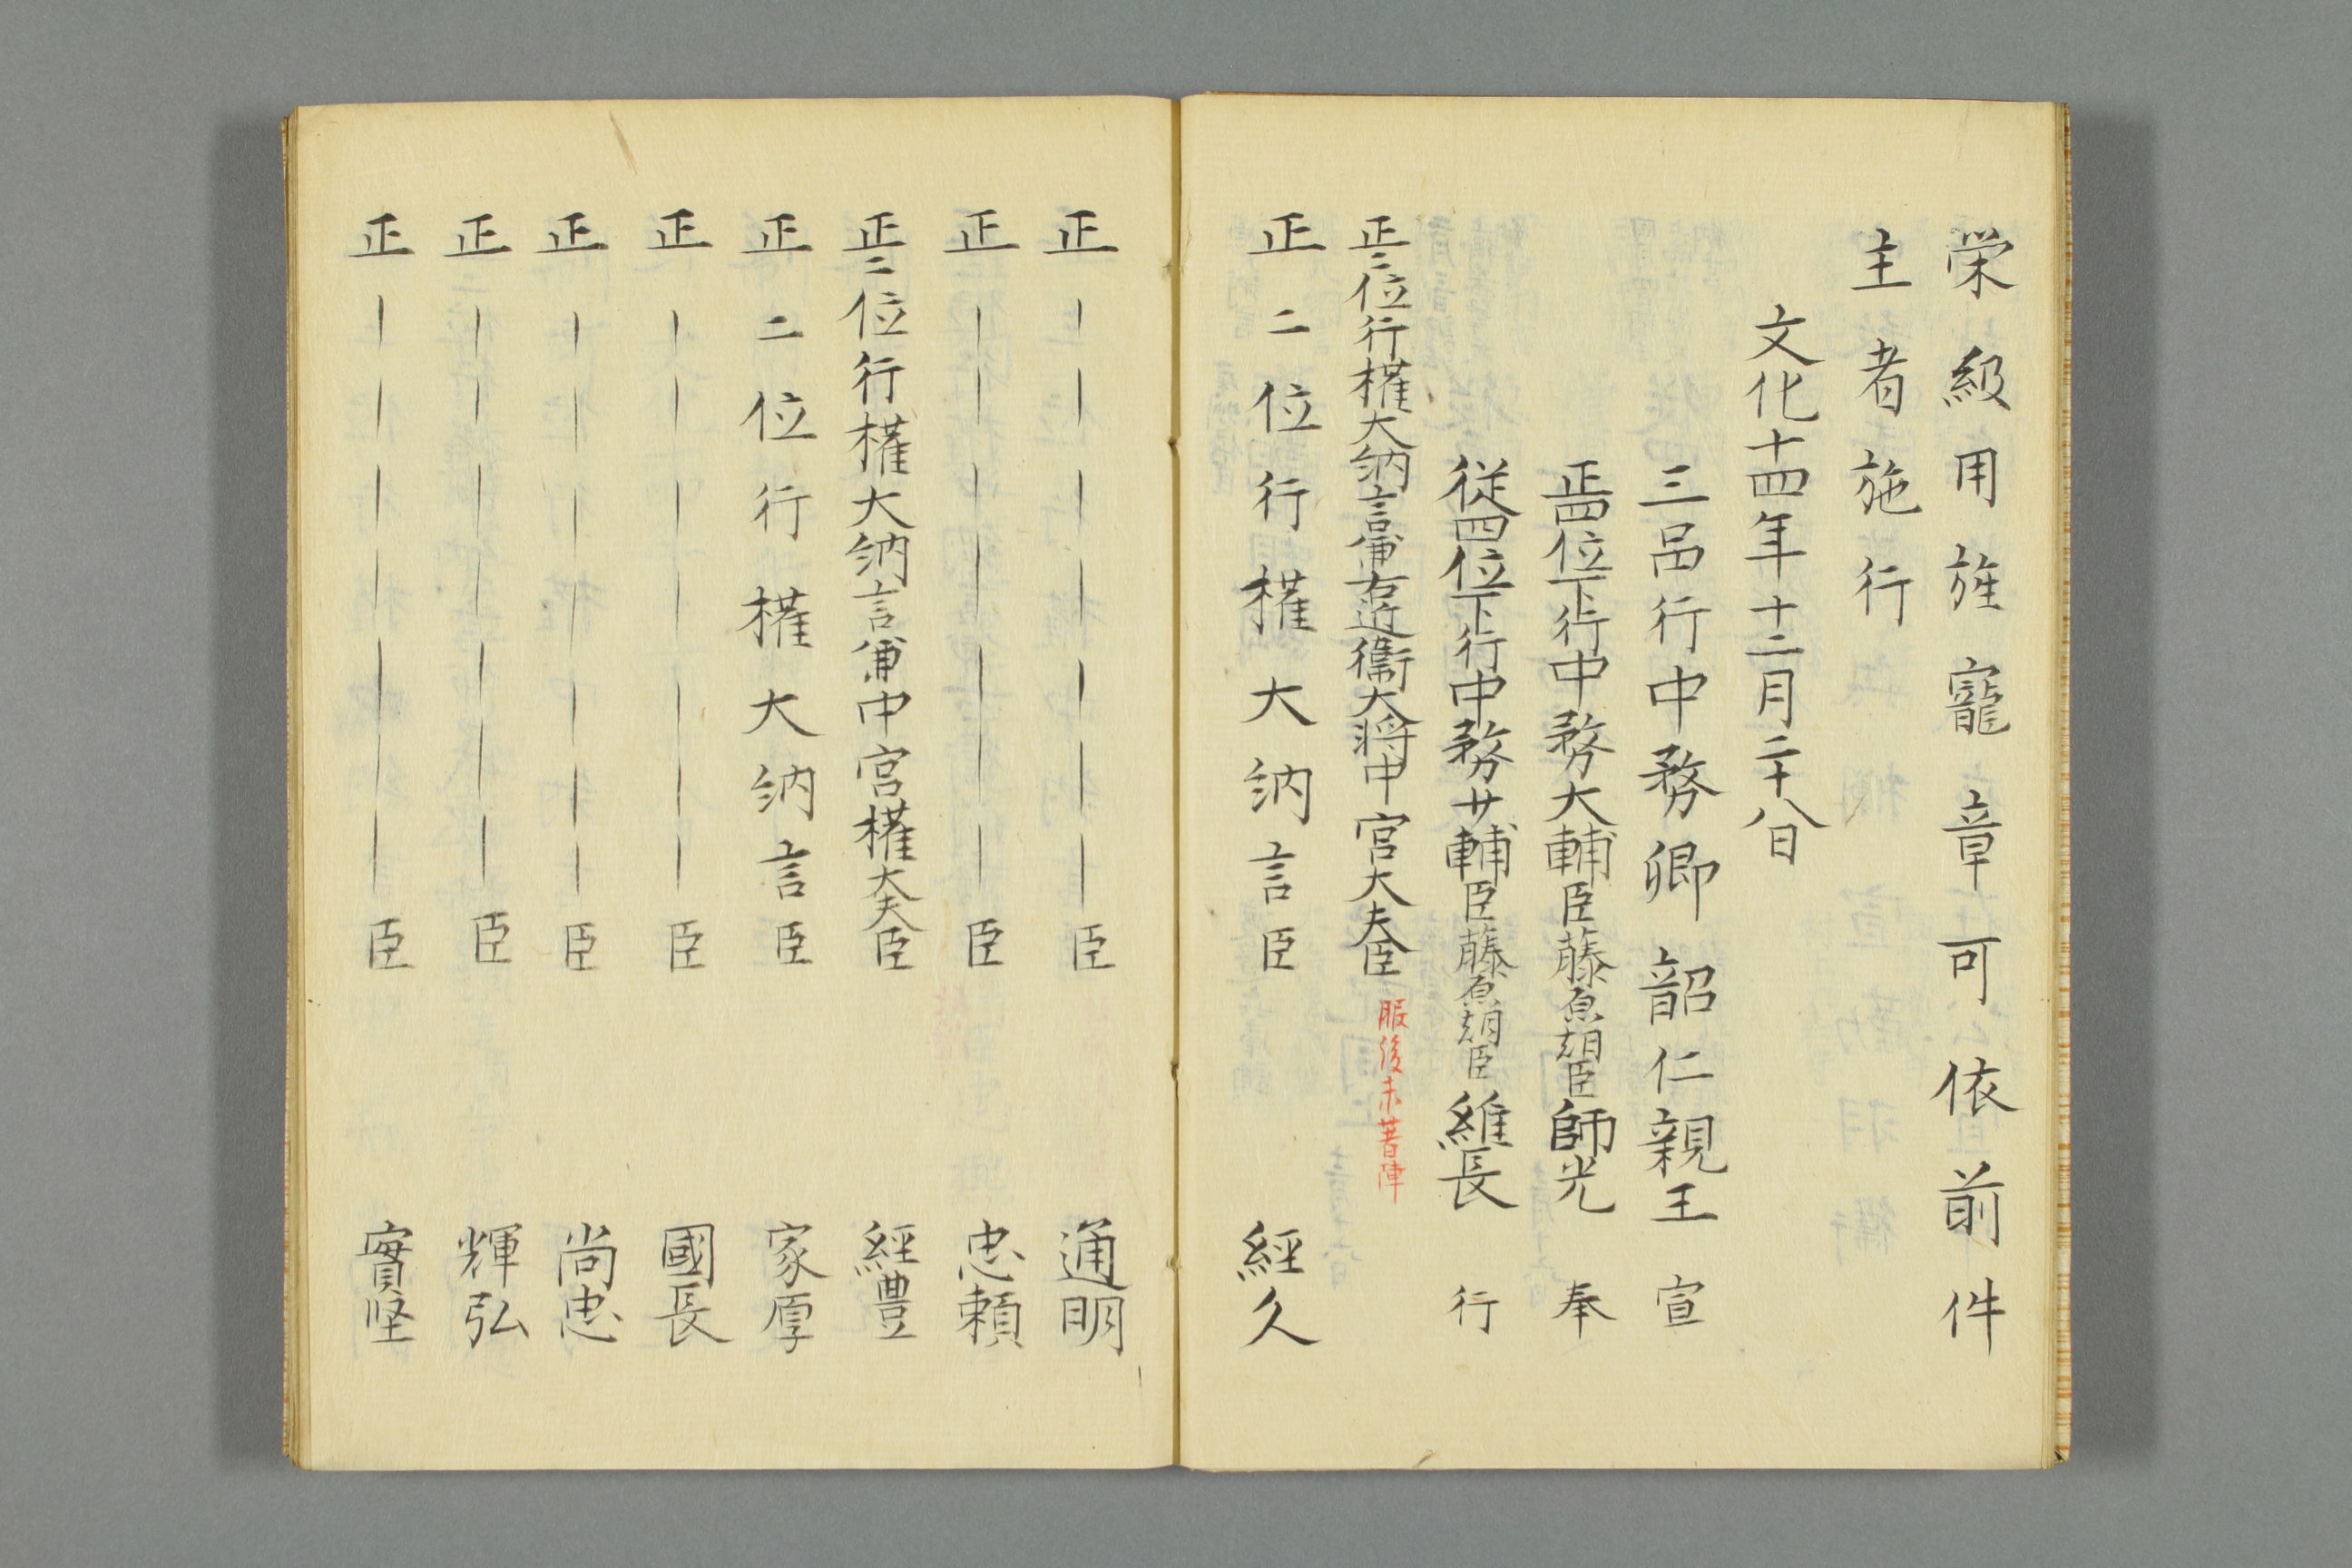 栄級用旌寵章可依前件
主者施行
文化十四年十二月二十八日
三品行中務卿韶仁親王宣
正四位下行中務大輔臣藤原朝臣師光奉
従四位下行中務少輔臣藤原朝臣維長行
正二位行権大納言兼右近衛大将中宮大夫臣
服後未著陣
正二位行権大納言臣経久
正——————臣通明
正——————臣忠頼
正二位行権大納言兼中宮権大夫臣經豊
正二位行権大納言臣家厚
正——————臣國長
正——————臣尚忠
正——————臣輝弘
正——————臣實堅